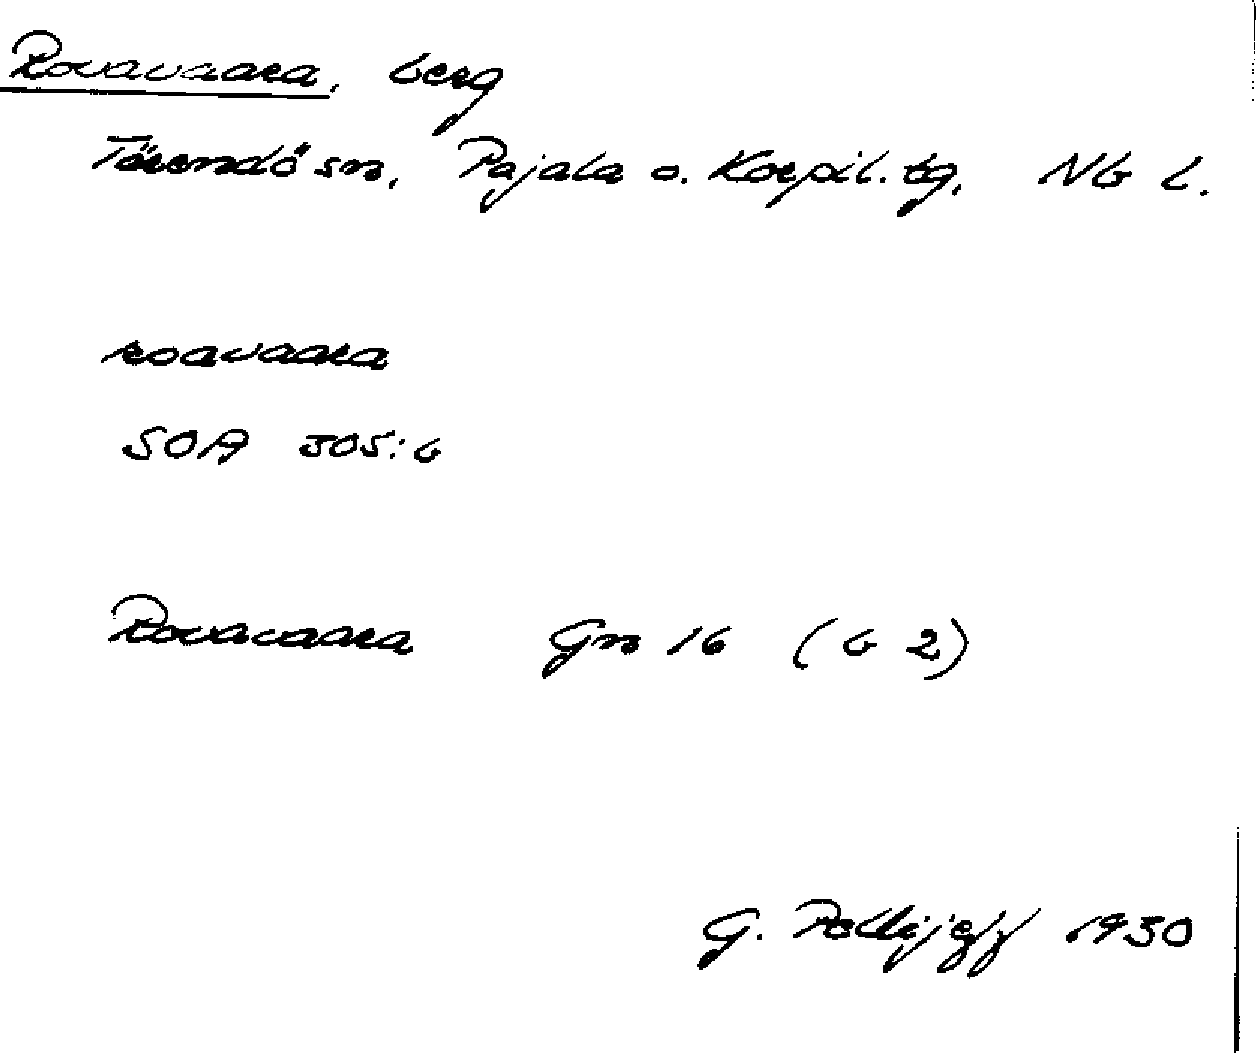 Rovavaara, berg
Tärendö sn, Pajala o. Korpil. tg, Nb l.
roavaara
SOA 305:6
Rovavaara Gn 16 (b 2)
G. Pellijeff 1930